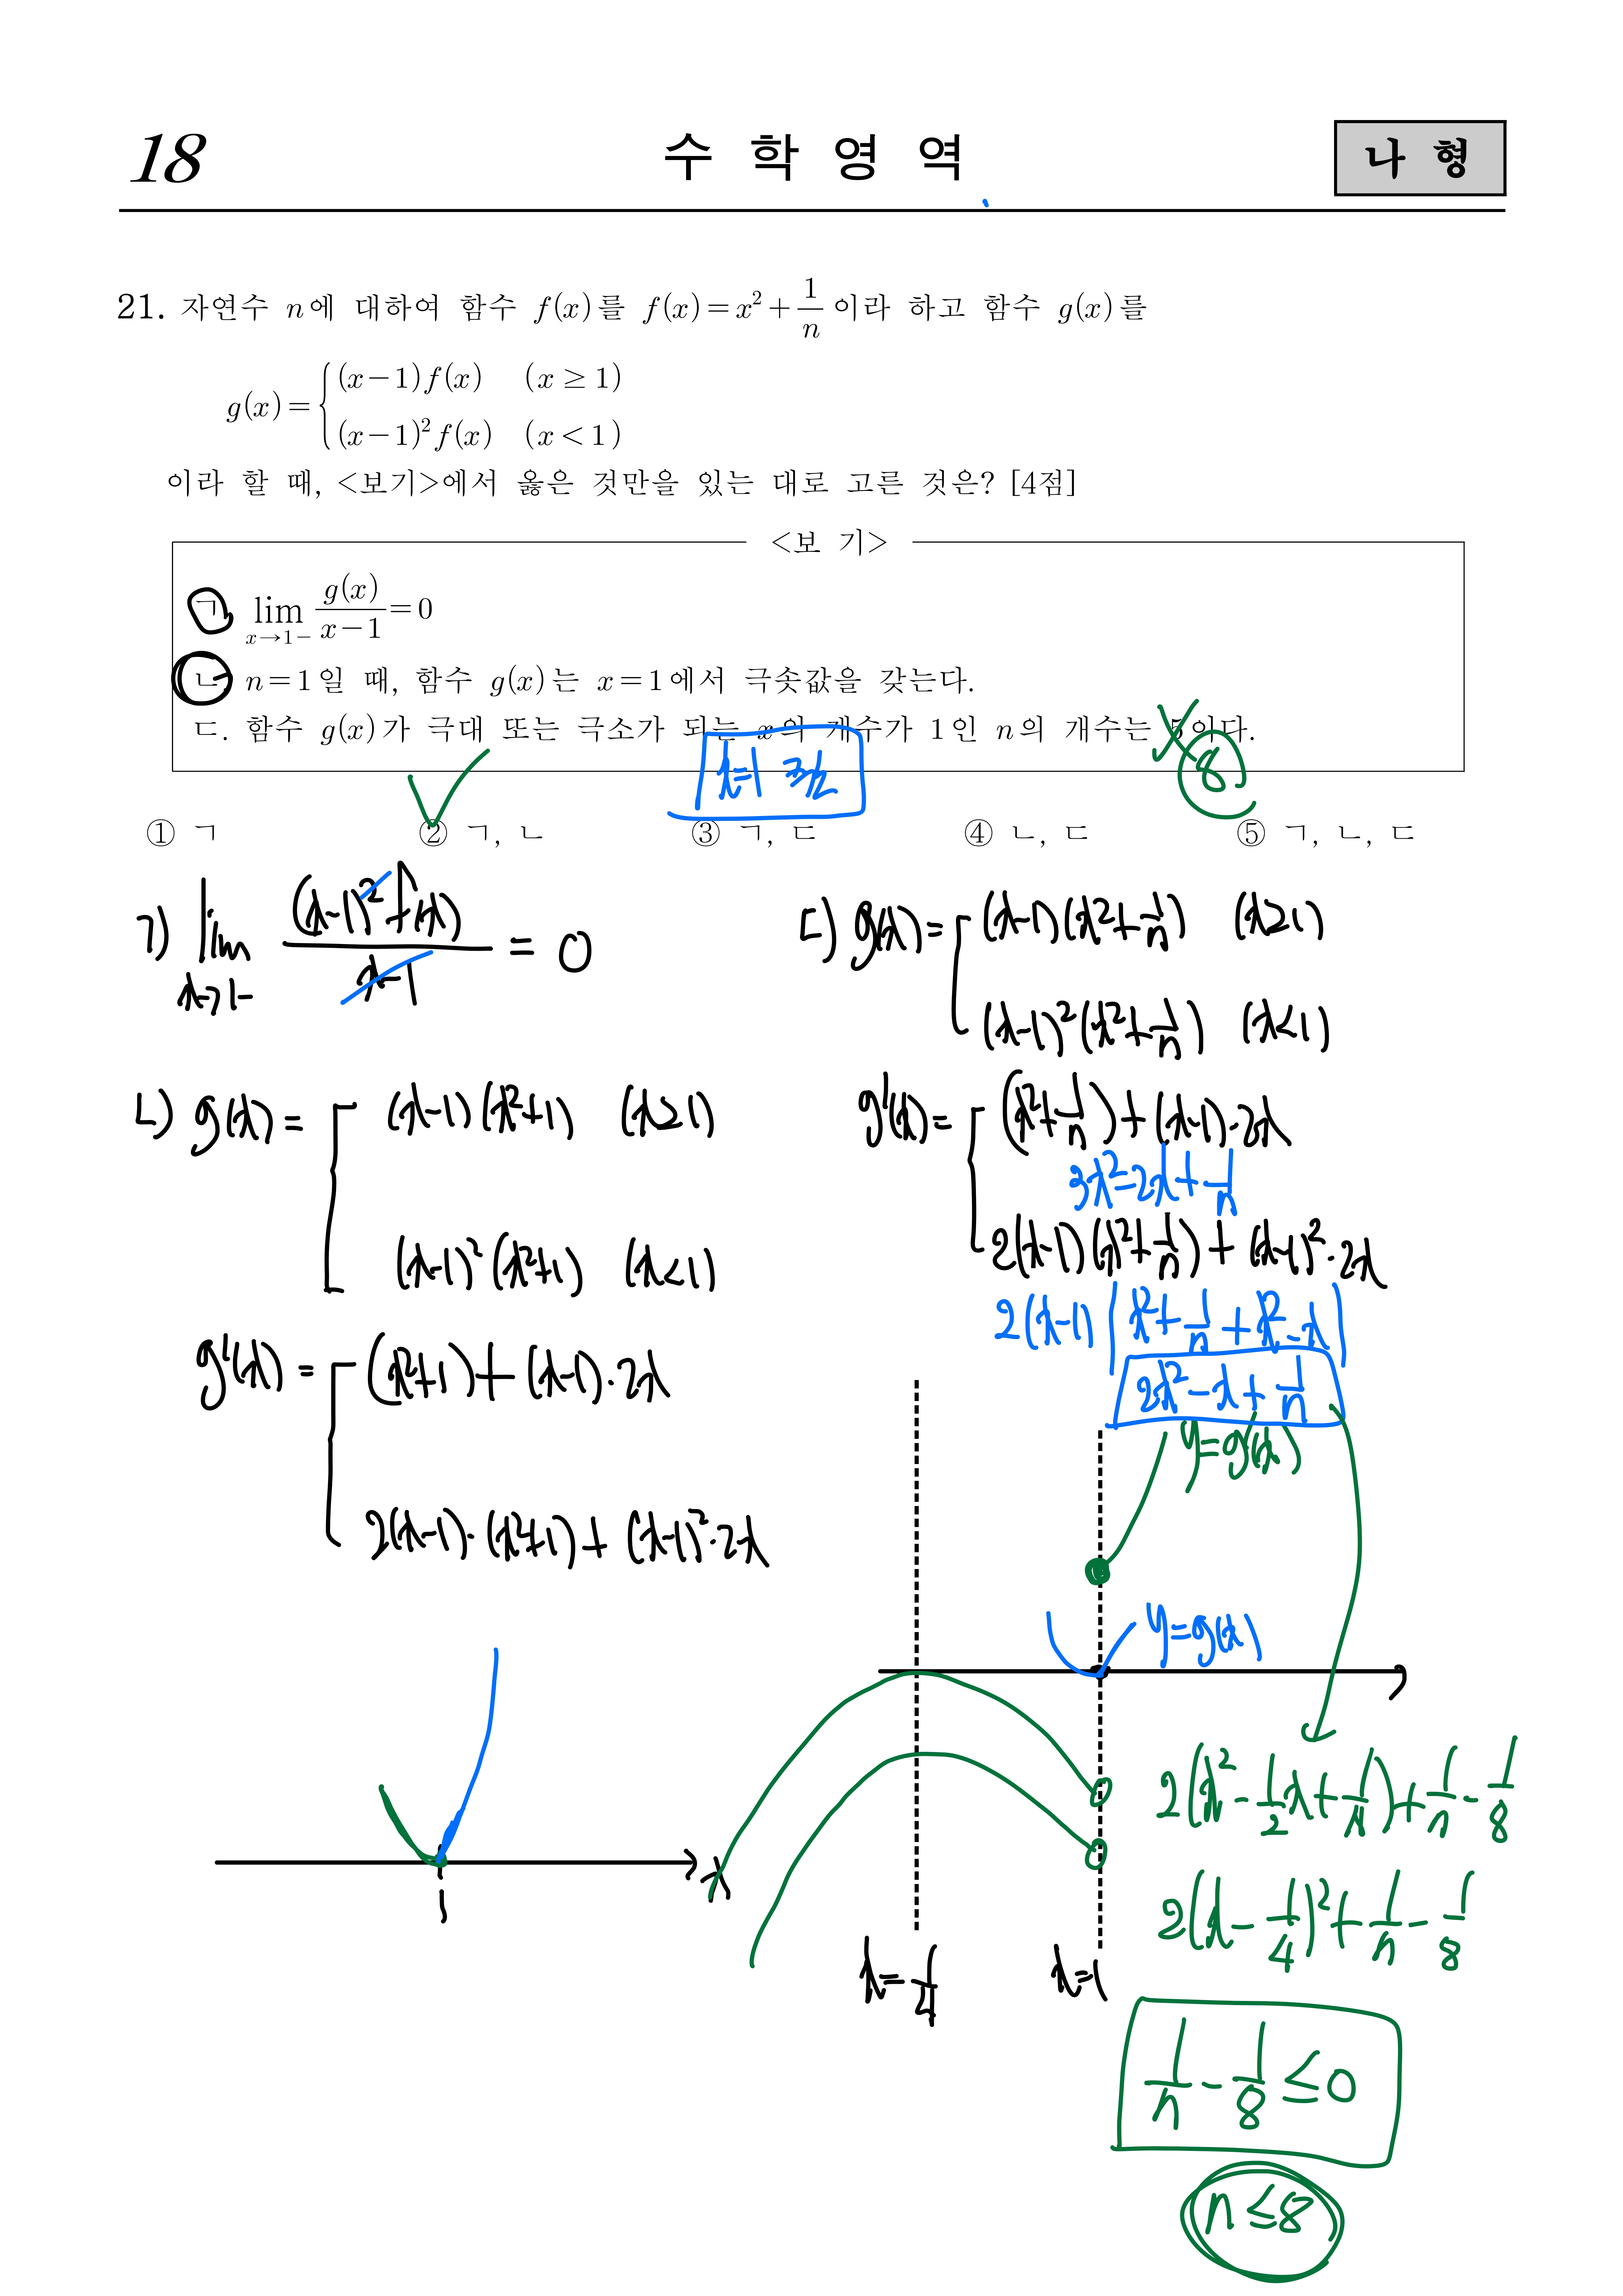 18
수 학 영 역
나 형
21. 자연수 n에 대하여 함수 f(x)를 f(x)=x²+1/n 이라 하고 함수 g(x)를
g(x)={ (x-1)f(x) (x≥1)
(x-1)²f(x) (x<1)
이라 할 때, <보기>에서 옳은 것만을 있는 대로 고른 것은? [4점]
<보 기>
ㄱ. lim x→1- g(x)/(x-1)=0
ㄴ. n=1일 때, 함수 g(x)는 x=1에서 극솟값을 갖는다.
ㄷ. 함수 g(x)가 극대 또는 극소가 되는 x의 개수가 1인 n의 개수는 5이다.
x=1 극소
8
① ㄱ ② ㄱ, ㄴ ③ ㄱ, ㄷ ④ ㄴ, ㄷ ⑤ ㄱ, ㄴ, ㄷ
ㄱ) lim x→1- (x-1)²f(x)/(x-1) = 0
ㄴ) g(x) = (x-1)(x²+1) (x≥1)
(x-1)²(x²+1) (x<1)
g'(x) = (x²+1)+(x-1)·2x
2(x-1)·(x²+1)+(x-1)²·2x
1
x
ㄷ) g(x)= (x-1)(x²+1/n) (x≥1)
(x-1)²(x²+1/n) (x<1)
g'(x)= (x²+1/n)+(x-1)·2x
3x²-2x+1/n
2(x-1)(x²+1/n)+(x-1)²·2x
2(x-1)[x²+1/n+x²-x]
2x²-x+1/n
y=g'(x)
y=g(x)
x=1/4
x=1
2(x²-1/2x+1/16)+1/n-1/8
2(x-1/4)²+1/n-1/8
1/n-1/8≤0
n≤8